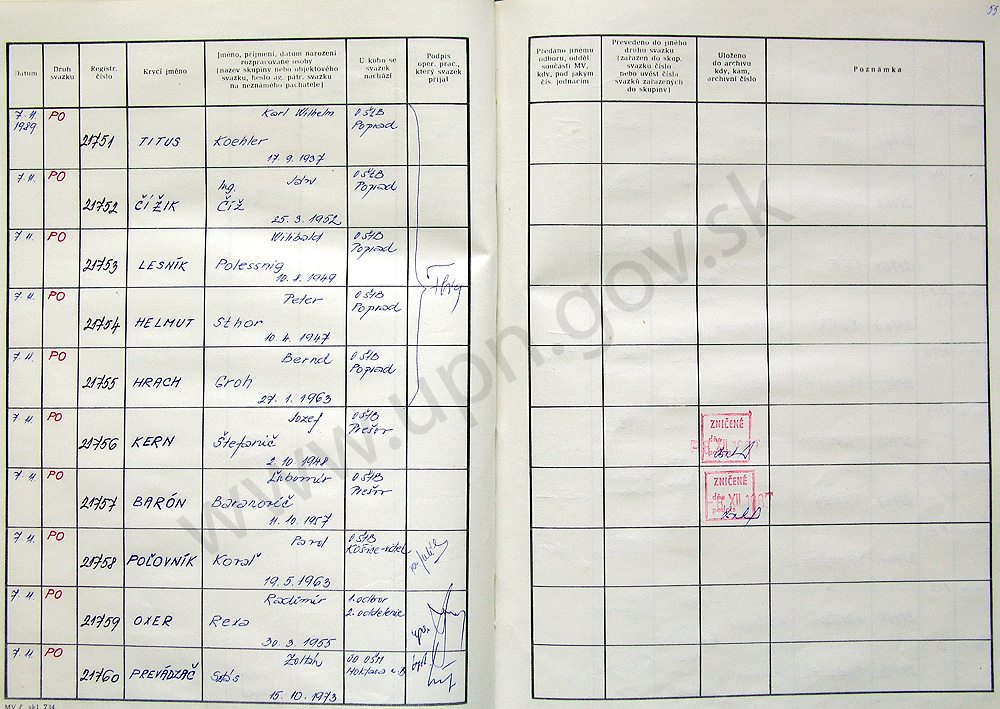 55
Datum
Druh svazku
Registr. číslo
Krycí jméno
Jméno, příjmení, datum narození
rozpracované osoby
[název skupiny nebo objektového
svazku, heslo ag. pátr. svazku
na neznámého pachatele]
U koho se
svazek
nachází
Podpis
oper. prac.,
který svazek
přijal
Předáno jinému
odboru, odděl.
součásti MV,
kdy, pod jakým
čís. jednacím
Převedeno do jiného
druhu svazku
[zařazen do skup.
svazku číslo
nebo uvést čísla
svazků zařazených
do skupiny]
Uloženo
do archivu
kdy, kam,
archivní číslo
Poznámka
7. 11. 1989 PO 21751 TITUS Karl Wilhelm Koehler 17. 9. 1937 O ŠtB Poprad
7. 11. PO 21752 ČÍŽIK Ing. Ján Číž 25. 3. 1952 O ŠtB Poprad
7. 11. PO 21753 LESNÍK Wilibald Polessnig 10. 8. 1949 O ŠtB Poprad
7. 11. PO 21754 HELMUT Peter Sthor 10. 4. 1947 O ŠtB Poprad
7. 11. PO 21755 HRACH Bernd Groh 27. 1. 1963 O ŠtB Poprad
7. 11. PO 21756 KERN Jozef Štefanič 2. 10. 1948 O ŠtB Prešov
ZNIČENÉ
dňa
7. 11. PO 21757 BARÓN Ľubomír Baranovič 11. 10. 1957 O ŠtB Prešov
ZNIČENÉ
dňa
- 8. XII. 1987
7. 11. PO 21758 POĽOVNÍK Pavol Koraľ 19. 5. 1963 O ŠtB
7. 11. PO 21759 OXER Radimír Rexa 30. 3. 1955 1. odbor 2. oddelenie
7. 11. PO 21760 PREVÁDZAČ Zoltán 15. 10. 1973
MV č. skl. 734
www.upn.gov.sk